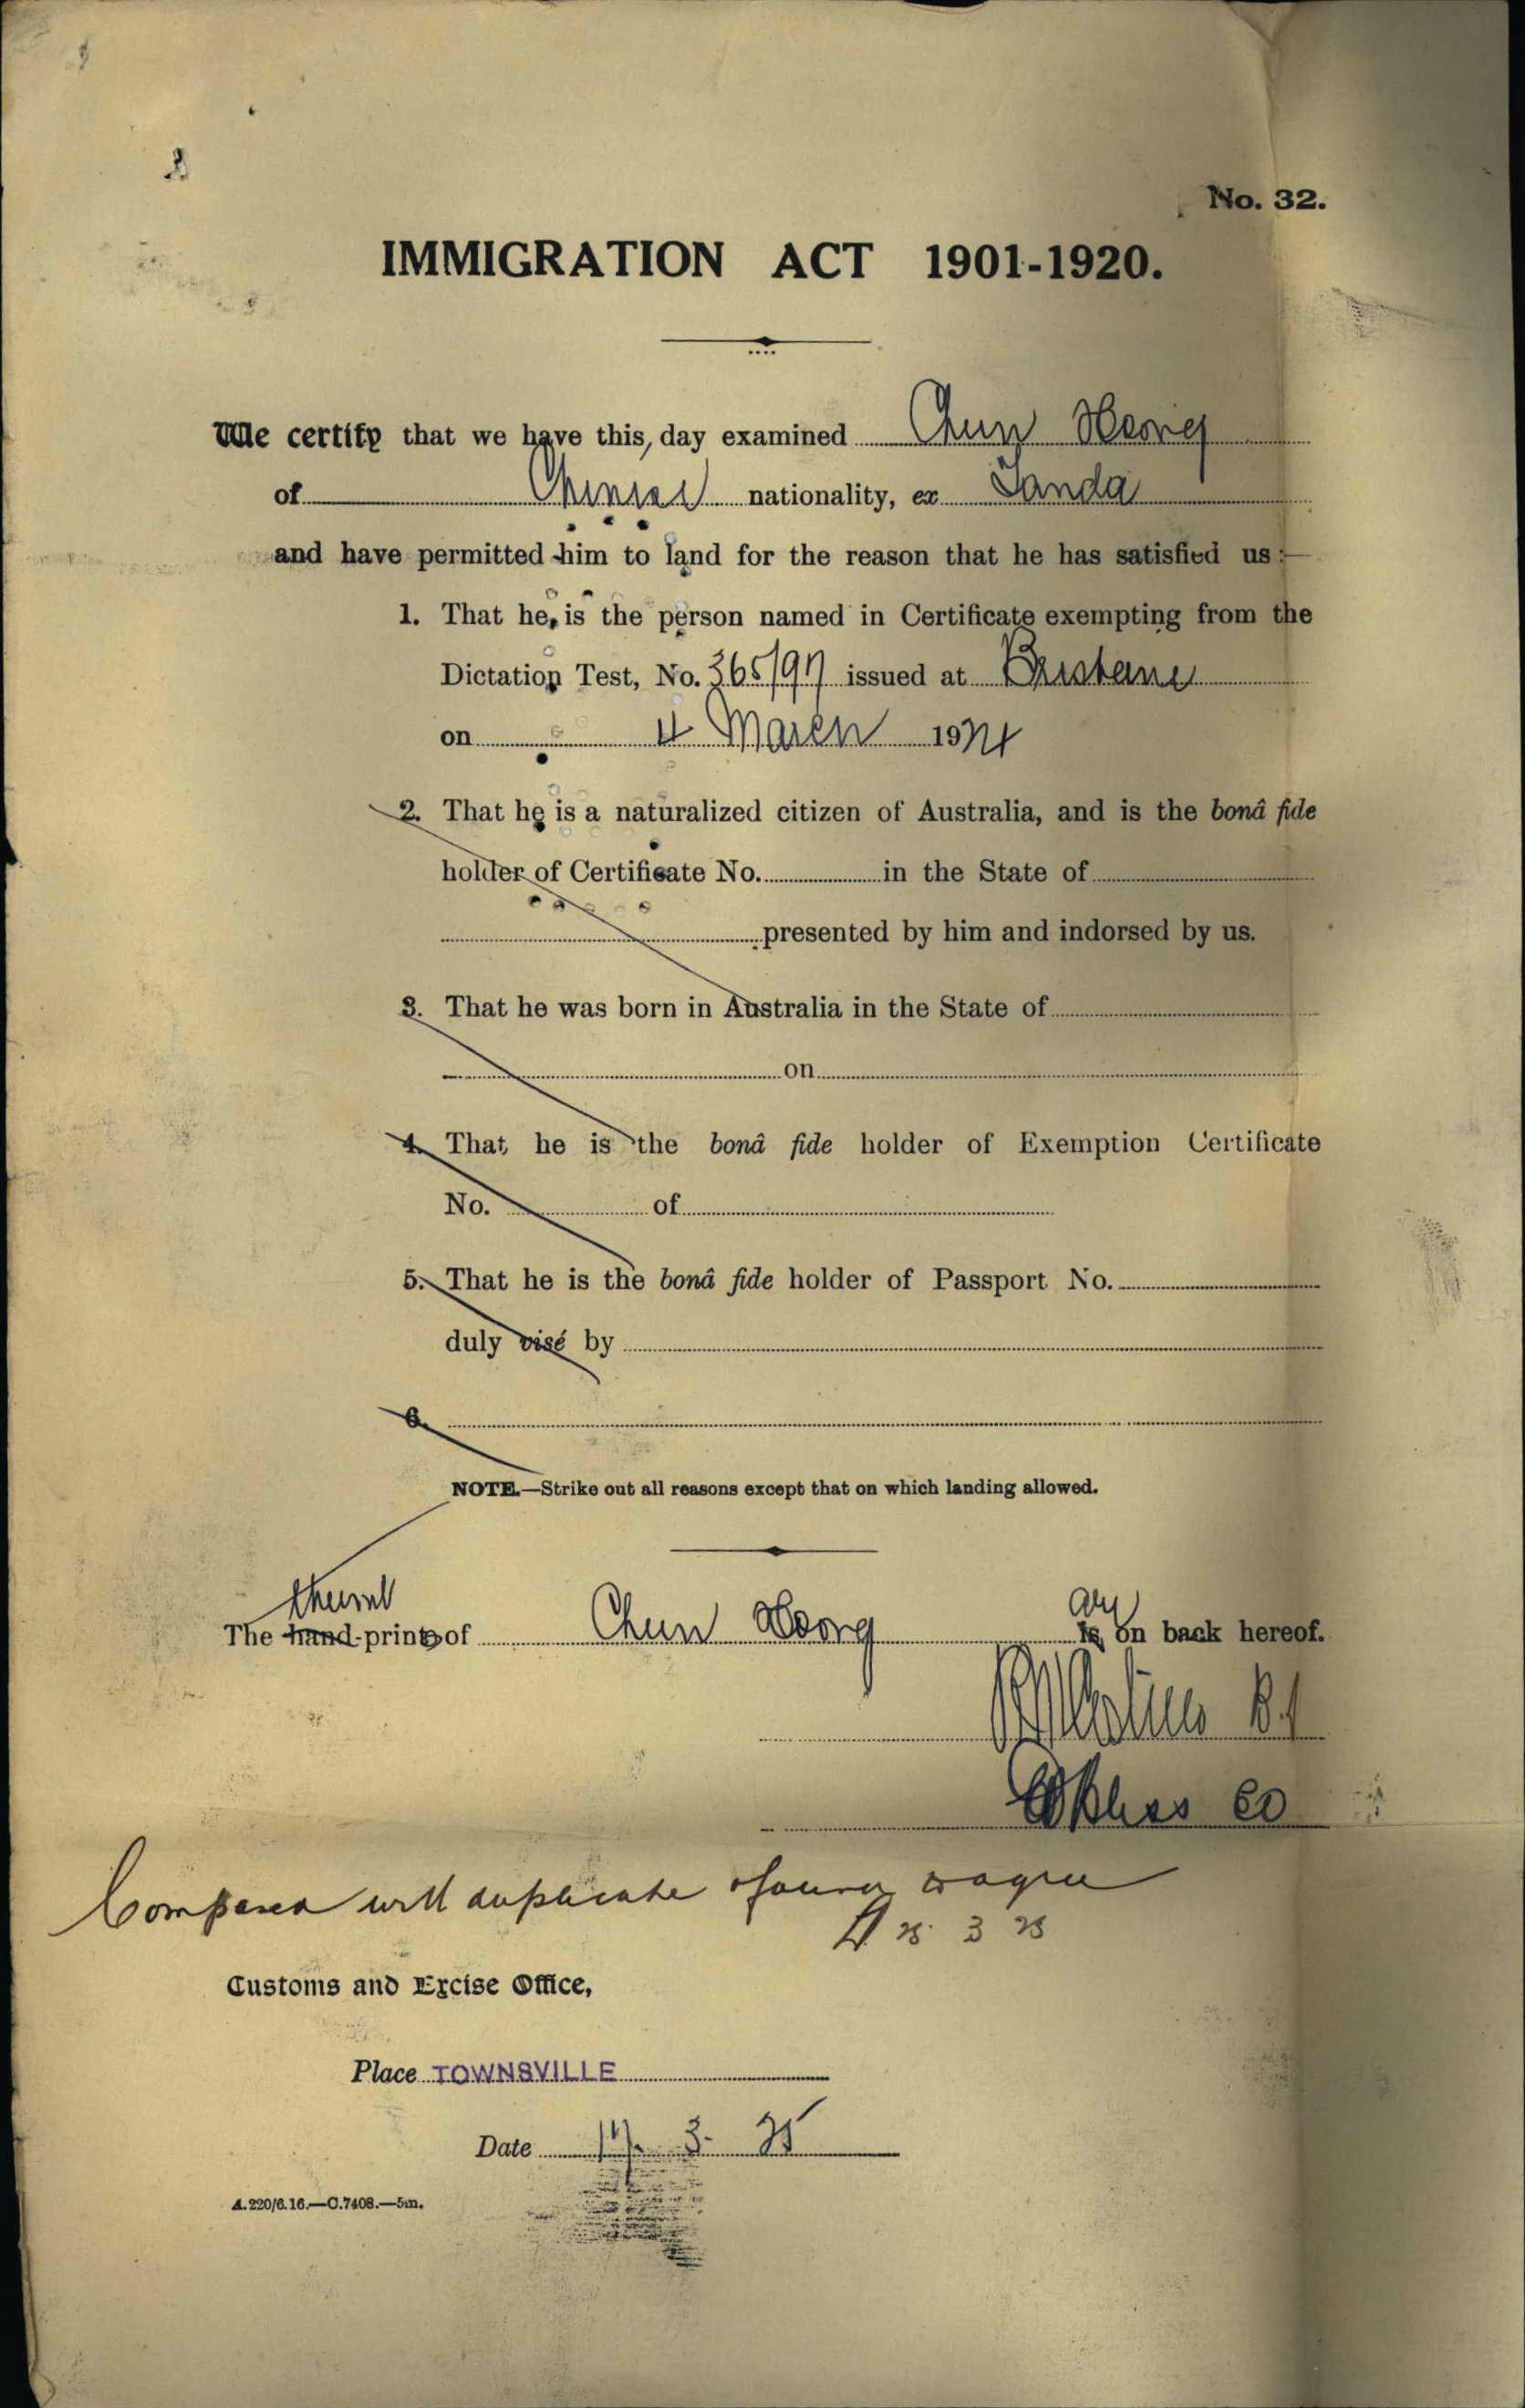 No. 32.
IMMIGRATION ACT 1901-1920.
We certify that we have this day examined Chun Hoong
of Chinese nationality, ex Tanda
and have permitted him to land for the reason that he has satisfied us:—
1. That he is the person named in Certificate exempting from the
Dictation Test, No. 365/97 issued at Brisbane
on 4 March 1924
2. That he is a naturalized citizen of Australia, and is the bonâ fide
holder of Certificate No. in the State of
presented by him and indorsed by us.
3. That he was born in Australia in the State of
on
4. That he is the bonâ fide holder of Exemption Certificate
No. of
5. That he is the bonâ fide holder of Passport No.
duly visé by
6.
NOTE.—Strike out all reasons except that on which landing allowed.
thumb
The hand-prints of Chun Hoong is on back hereof.
are
Compared with duplicate & found to agree
25 3 25
Customs and Excise Office,
Place TOWNSVILLE
Date 17. 3. 25
A.220/6.16.—C.7408.—5m.